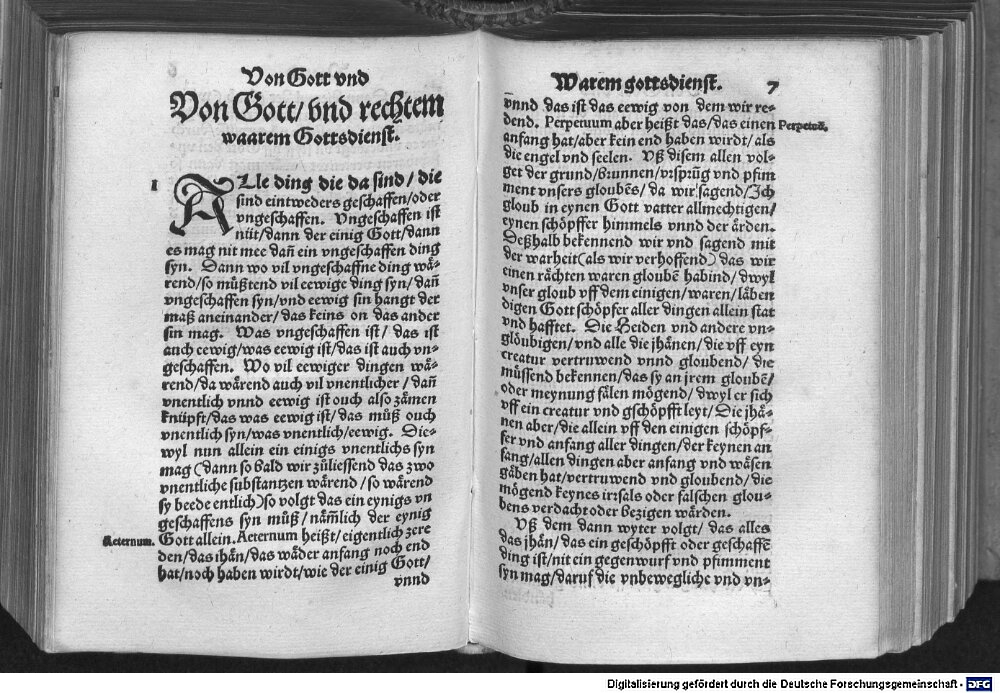 Von Gott vnd
Von Gott/ vnd rechtem
waarem Gottsdienst.
I
ALle ding die da sind/ die
sind eintweders geschaffen/oder
vngeschaffen. Vngeschaffen ist
nüt/dann der einig Gott/dann
es mag nit mee dañ ein vngeschaffen ding
syn. Dann wo vil vngeschaffne ding wä-
rend/so müßtend vil eewige ding syn/dañ
vngeschaffen syn/vnd eewig sin hangt der
maß aneinander/das keins on das ander
sin mag. Was vngeschaffen ist/ das ist
auch eewig/was eewig ist/das ist auch vn-
geschaffen. Wo vil eewiger dingen wä-
rend/da wärend auch vil vnentlicher/ dañ
vnentlich vnnd eewig ist ouch also zämen
knüpft/das was eewig ist/das muß ouch
vnentlich syn/was vnentlich/eewig. Die-
wyl nun allein ein einigs vnentlichs syn
mag (dann so bald wir zůliessend das zwo
vnentliche substantzen wärend/so wärend
sy beede entlich) so volgt das ein eynigs vn
geschaffens syn müß/ nämlich der eynig
Gott allein. Aeternum heißt/eigentlich zere
Aeternum.
den/das ihän/das wäder anfang noch end
hat/noch haben wirdt/wie der einig Gott/
vnnd
Warem gottsdienst. 7
vnnd das ist das eewig von dem wir re-
dend. Perpetuum aber heißt das/das einen
Perpetuū.
anfang hat/aber kein end haben wirdt/als
die engel vnd seelen. Vß disem allen vol-
get der grund/Brunnen/vrsprūg vnd pfim
ment vnsers gloubēs/ da wir sagend/Ich
gloub in eynen Gott vatter allmechtigen/
eynen schöpffer himmels vnnd der ärden.
Deßhalb bekennend wir vnd sagend mit
der warheit (als wir verhoffend) das wir
einen rächten waren gloubē habind/dwyl
vnser gloub vff dem einigen/waren/läben
digen Gott schöpfer aller dingen allein stat
vnd hafftet. Die Heiden und andere vn-
glöubigen/vnd alle die jhänen/die vff eyn
creatur vertruwend vnnd gloubend/ die
müssend bekennen/das sy an jrem gloubē/
oder meynung fälen mögend/dwyl er sich
vff ein creatur vnd gschöpfft leyt/Die jhä-
nen aber/die allein vff den einigen schöpf-
fer vnd anfang aller dingen/der keynen an
fang/allen dingen aber anfang vnd wäsen
gäben hat/vertruwend vnd gloubend/die
mögend keynes irrsals oder falschen glou-
bens verdacht oder bezigen wärden.
Vß dem dann wyter volgt/ das alles
das jhän/das ein geschöpfft oder geschaffē
ding ist/nit ein gegenwurf vnd pfimment
syn mag/daruf die vnbewegliche vnd vn-
Digitalisierung gefördert durch die Deutsche Forschungsgemeinschaft - DFG